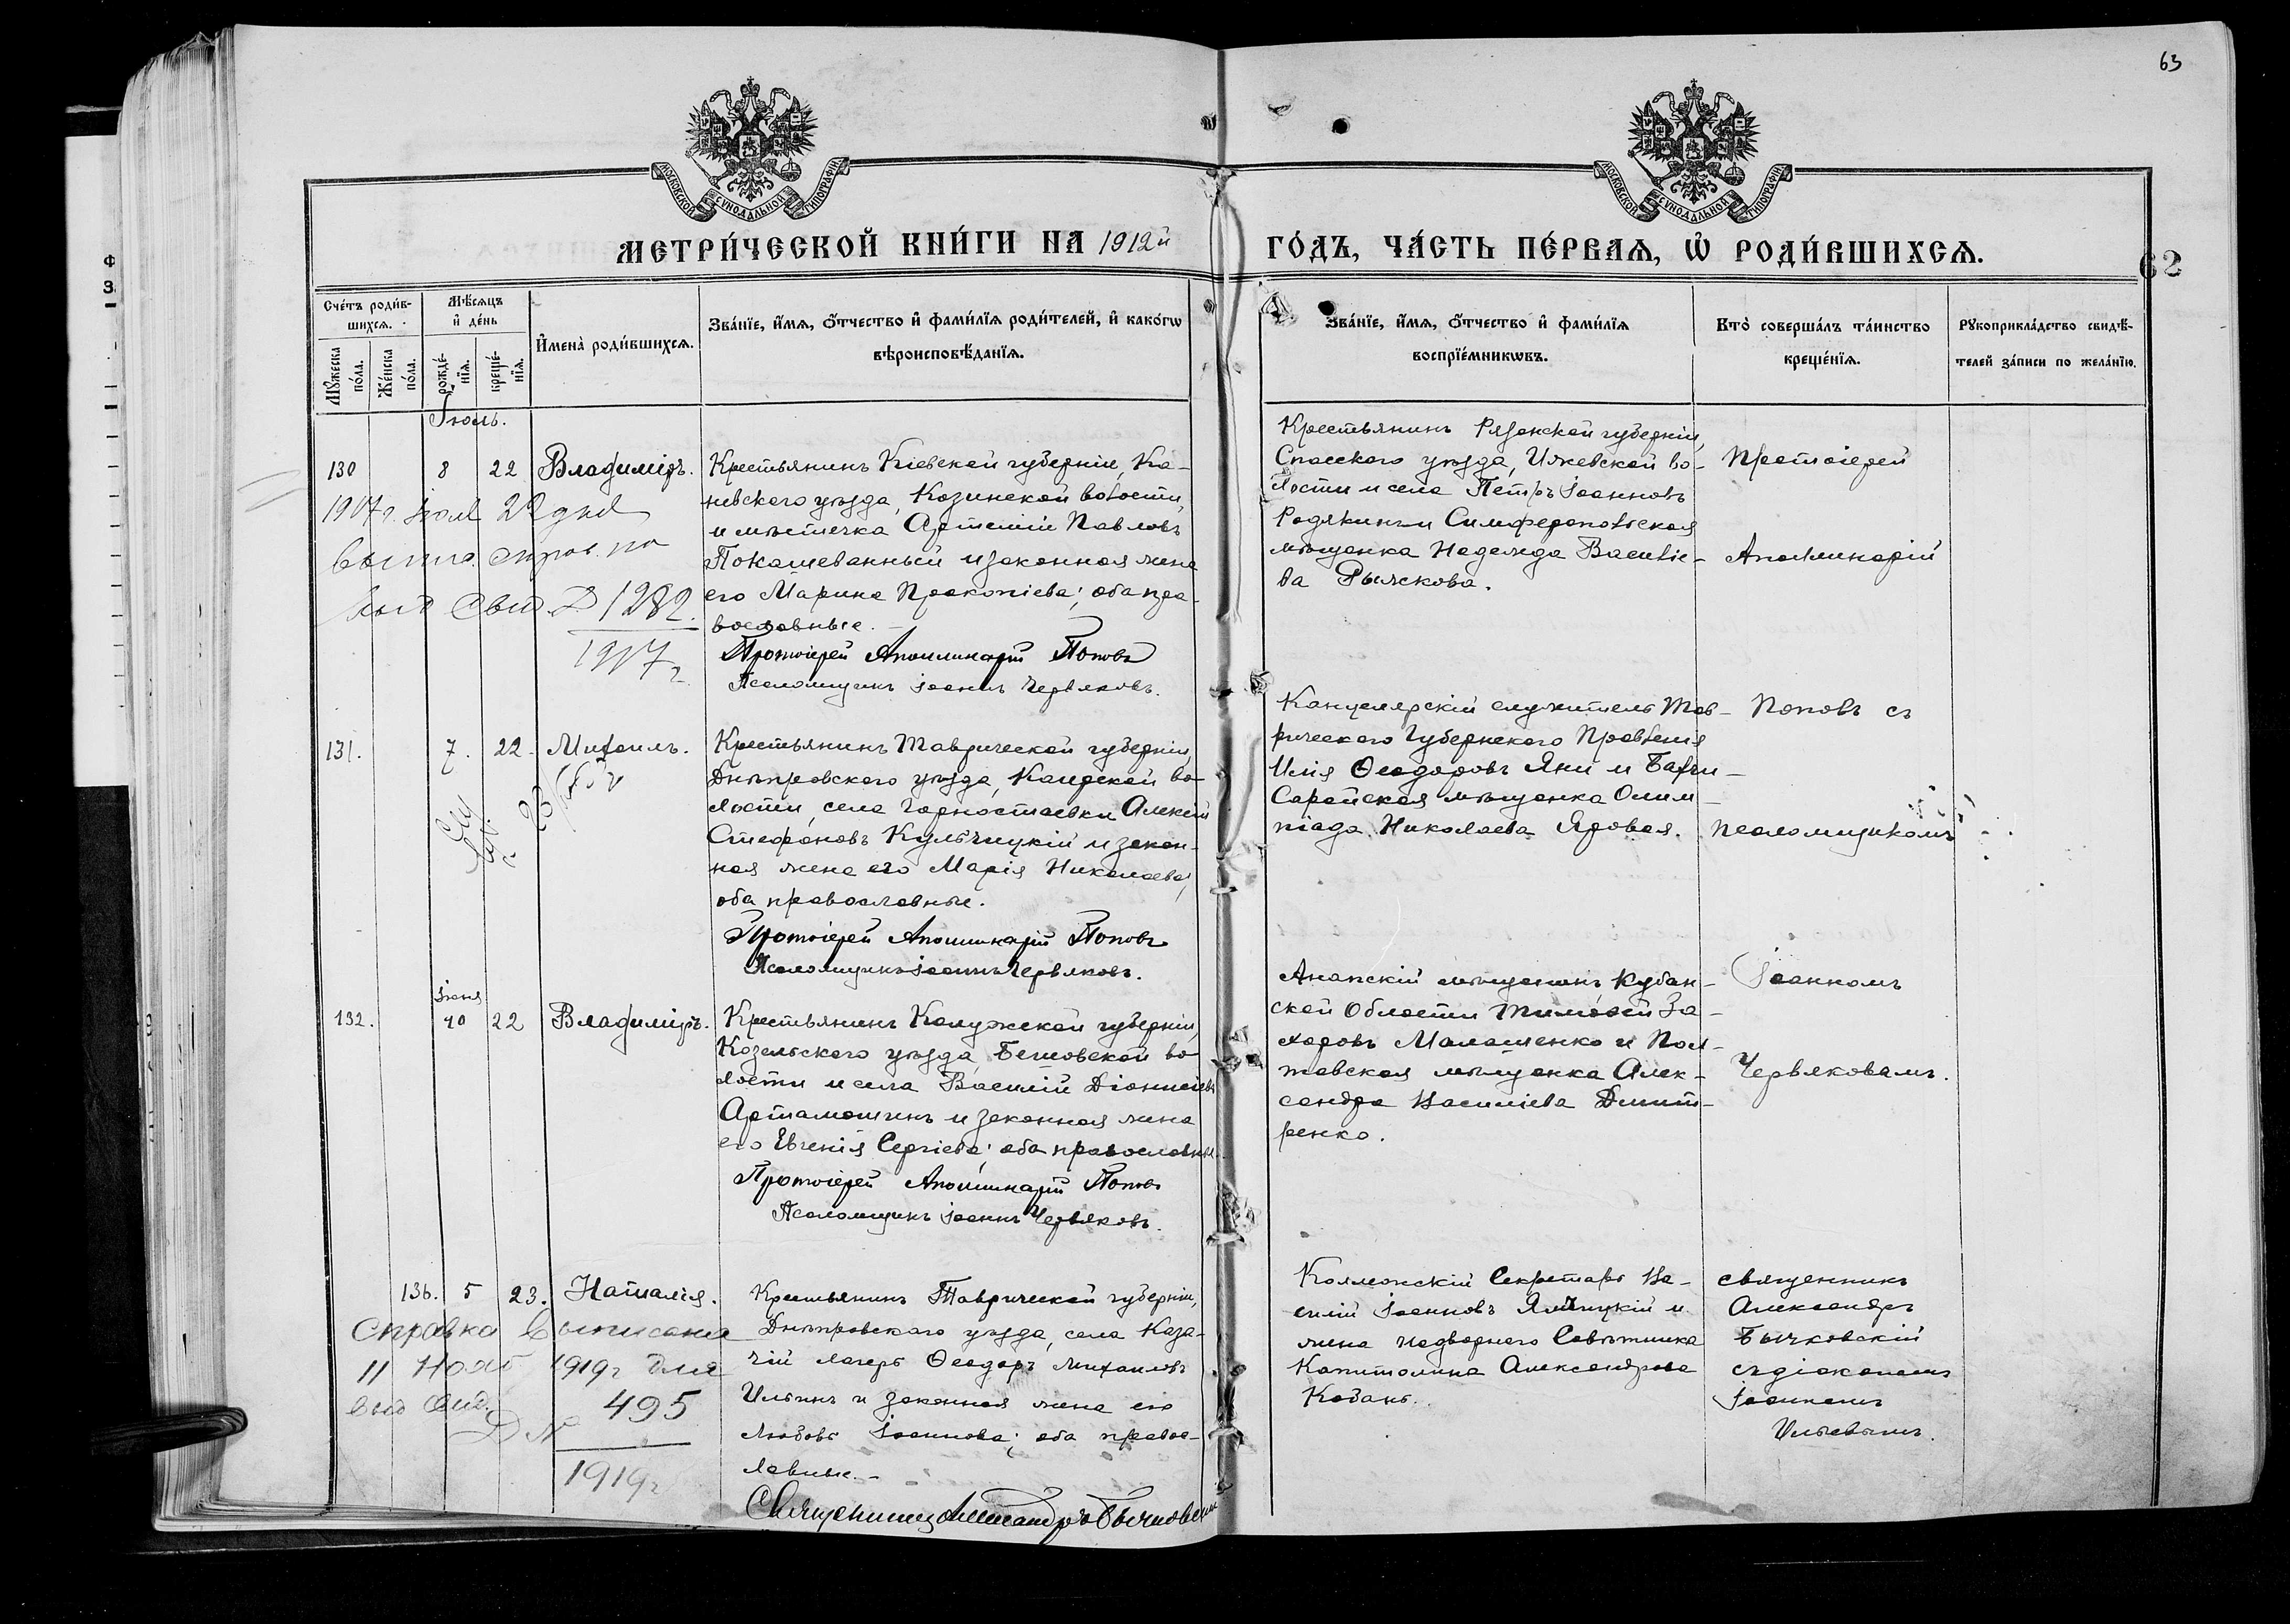 63
МОСКОВСКОЙ СѴНОДАЛЬНОЙ ТИПОГРАФІИ
МОСКОВСКОЙ СѴНОДАЛЬНОЙ ТИПОГРАФІИ
МЕТРИ́ЧЕСКОЙ КНИ́ГИ НА 1912й
ГО́ДЪ, ЧА́СТЬ ПЕ́РВАѦ, Ѿ РОДИ́ВШИХСѦ.
62
Сче́тъ роди́в-
шихсѧ.
Мѹжеска по́ла.
Же́нска по́ла.
Мѣ́сѧцъ
и҆ де́нь
рожде́-
нїѧ.
креще́-
нїѧ.
И҆мена̀ роди́вшихсѧ.
Зва́нїе, и҆́мѧ, ѻ҆́тчество и҆ фами́лїѧ роди́телей, и҆ како́гѡ
вѣроисповѣ́данїѧ.
Зва́нїе, и҆́мѧ, ѻ҆́тчество и҆ фами́лїѧ
воспрїе́мникѡвъ.
Кто̀ соверша́лъ та́инство
креще́нїѧ.
Рꙋкоприкла́дство свидѣ́-
телей за́писи по жела́нїю.
Іюль.
130
8
22
Владиміръ.
Крестьянинъ Кіевской губерніи, Ка-
невскаго уѣзда, Козинской волости
и мѣстечка Артемій Павловъ
Покашеванный и законная жена
его Марина Прокопіева; оба пра-
вославные.
Протоіерей Аполлинарій Поповъ
Псаломщикъ Іоаннъ Червяковъ.
1917 г. Іюля 22 дня
1282
1917 г.
Крестьянинъ Рязанской губерніи,
Спасскаго уѣзда, Ижевской во-
лости и села Петръ Іоанновъ
Родякинъ и Симферопольская
мѣщанка Надежда Василіе-
ва Рычкова.
Протоіерей
Аполлинарій
131.
7.
22.
Михаилъ.
Крестьянинъ Таврической губерніи
Днѣпровскаго уѣзда, Каирской во-
лости, села Горностаевки Алексій
Стефановъ Кульчицкій и закон-
ная жена его Марія Николаева;
оба православные.
Протоіерей Аполлинарій Поповъ
Псаломщикъ Іоаннъ Червяковъ.
Канцелярскій служитель Тав-
рическаго Губернскаго Правленія
Илія Ѳеодоровъ Яни и Бахчи-
Сарайская мѣщанка Олим-
піада Николаева Яровая.
Поповъ съ
псаломщикомъ
Іюня
132.
40
22
Владиміръ.
Крестьянинъ Калужской губерніи,
Козельскаго уѣзда, во-
лости и села Василій Діонисіевъ
Артамошинъ и законная жена
его Евгенія Сергіева; оба православные
Протоіерей Аполлинарій Поповъ
Псаломщикъ Іоаннъ Червяковъ.
Анапскій мѣщанинъ Кубан-
ской Области Тимоѳей За-
харовъ Малашенко и Пол-
тавская мѣщанка Алек-
сандра Василіева Дмит-
ренко.
Іоанномъ
Червяковымъ.
136.
5
23.
Наталія.
Крестьянинъ Таврической губерніи,
Днѣпровскаго уѣзда, села Каза-
чій лагерь Ѳеодоръ Михаиловъ
Ильинъ и законная жена его
Любовь Іоаннова; оба правос-
лавные.
Священникъ Александръ Бычковскій
Справка выписана
11 Нояб 1919 г для
выд свид.
№ 495
1919 г
Коллежскій Секретарь Ва-
силій Іоанновъ Яльчицкій и
жена Надворнаго Совѣтника
Капитолина Александрова
Кобань.
священникъ
Александръ
Бычковскій
съ діакономъ
Іоанномъ
Ильевымъ.